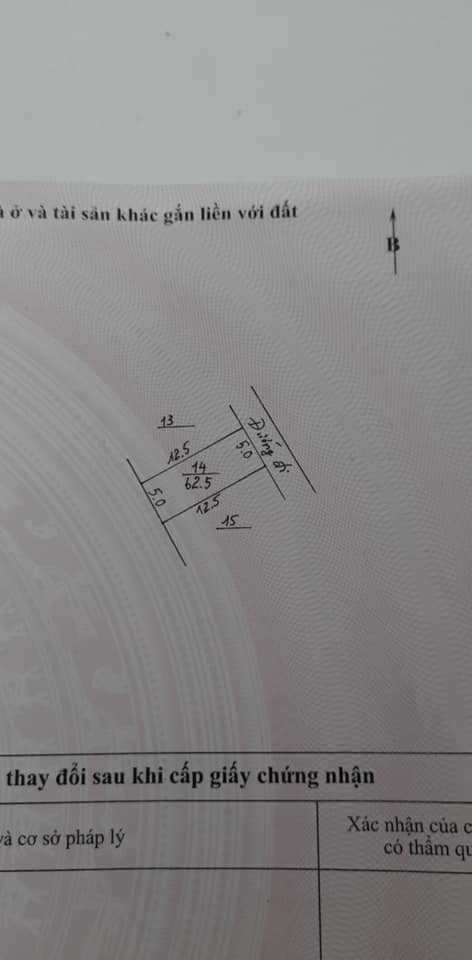 à ở và tài sản khác gắn liền với đất
B
13
Đường đi
12.5
5.0
14
62.5
5.0
12.5
15
thay đổi sau khi cấp giấy chứng nhận
và cơ sở pháp lý
Xác nhận của c
có thẩm qu